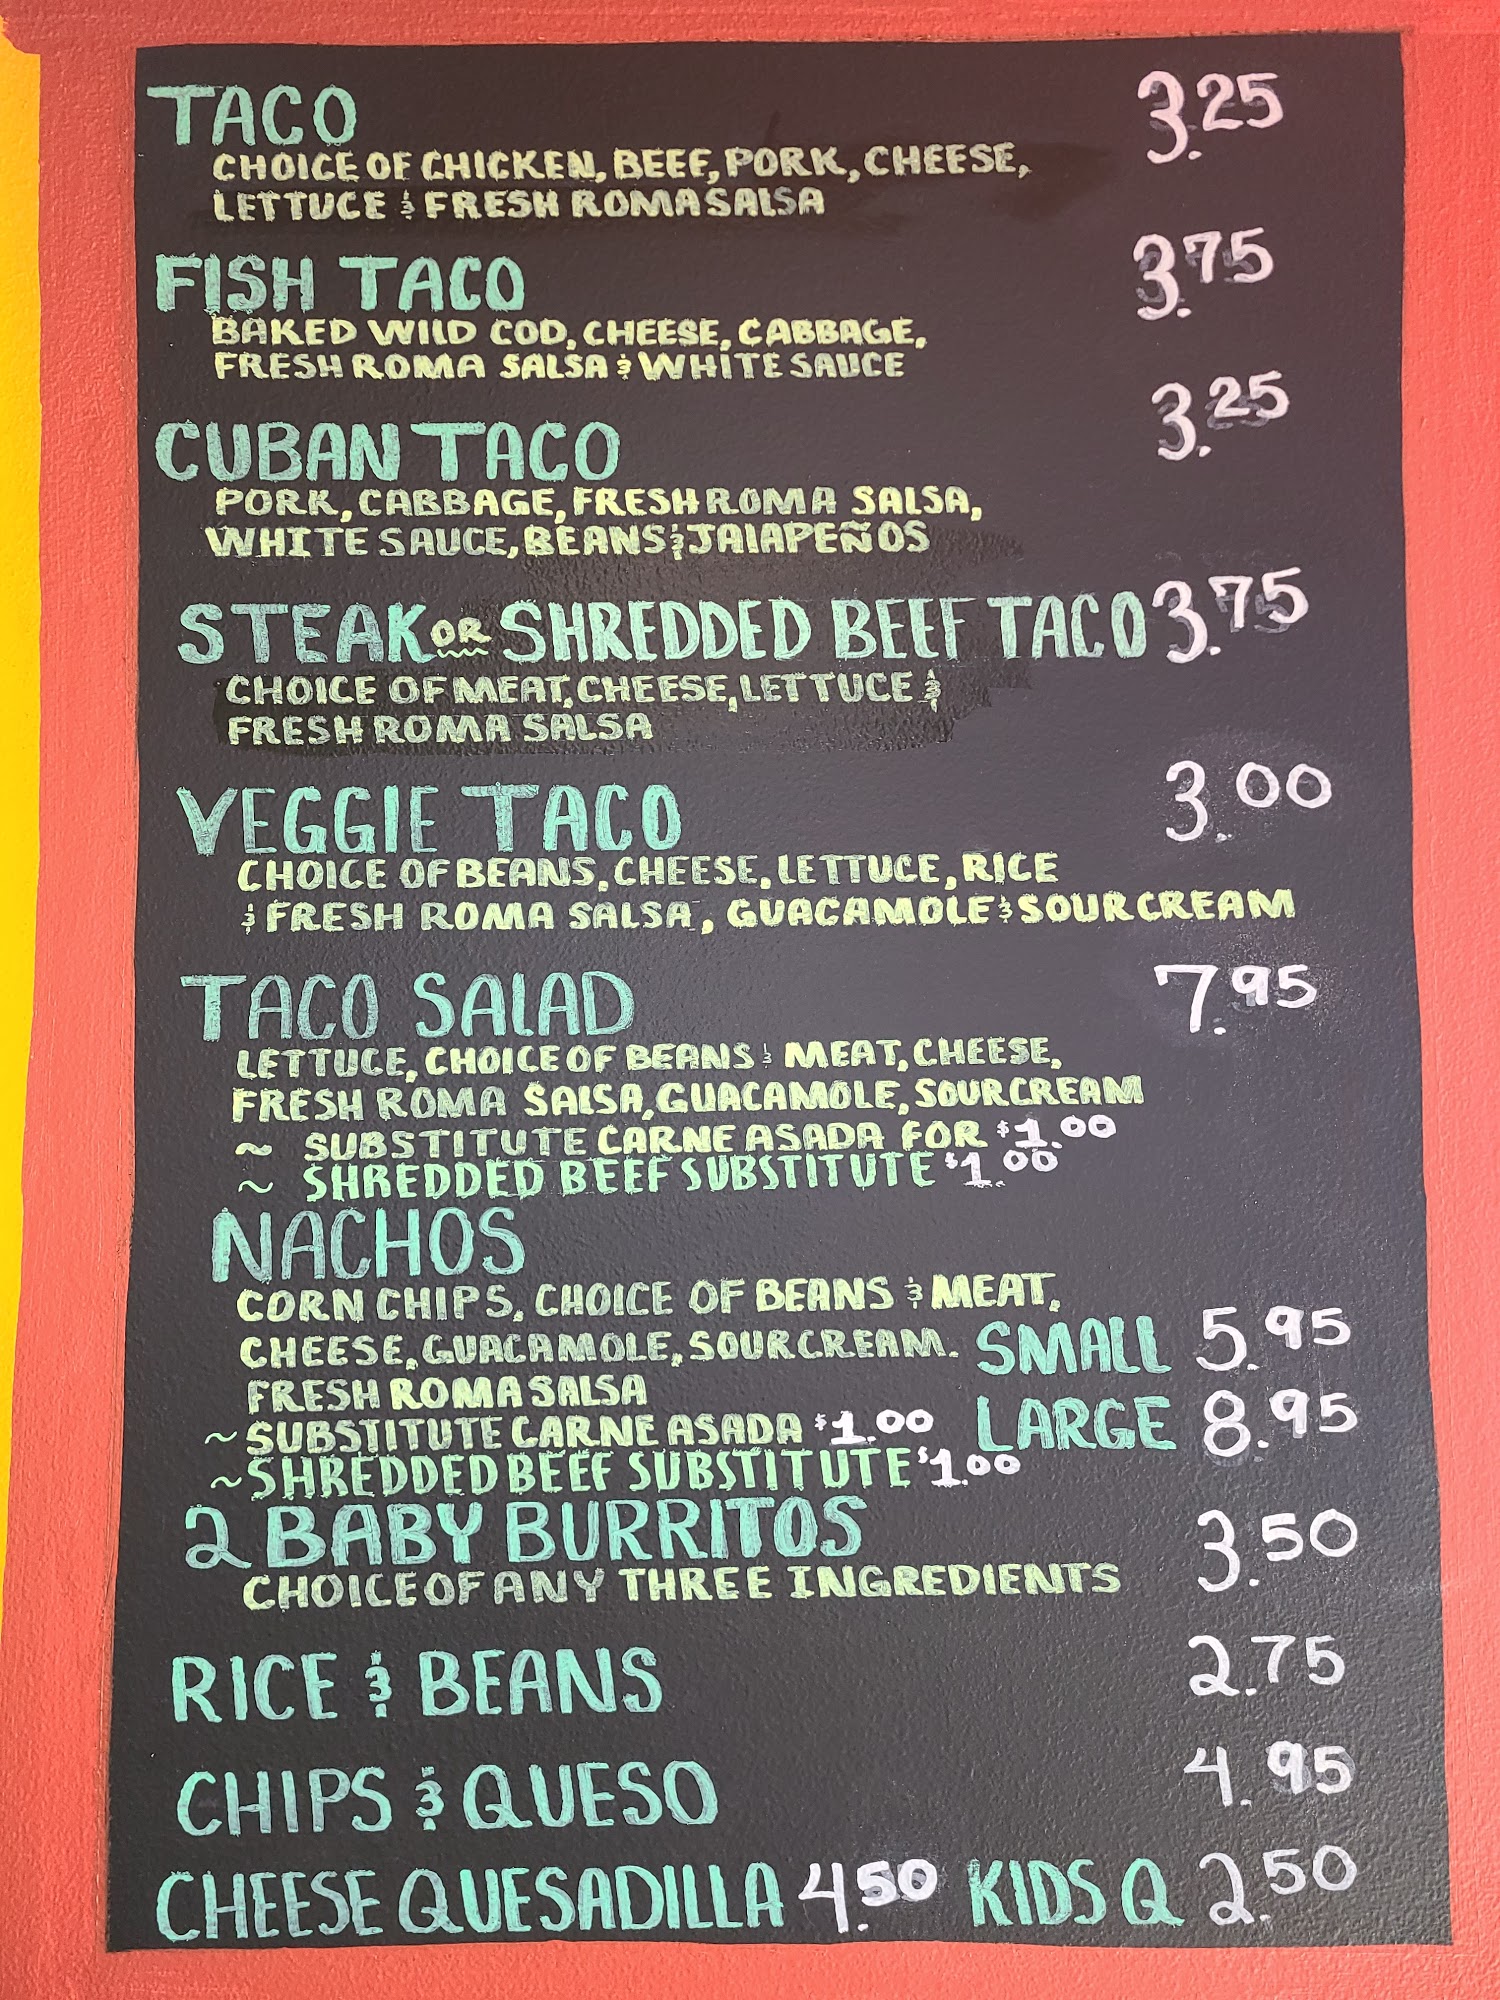 TACO 3.25
CHOICE OF CHICKEN, BEEF, PORK, CHEESE,
LETTUCE & FRESH ROMA SALSA
FISH TACO 3.75
BAKED WILD COD, CHEESE, CABBAGE,
FRESH ROMA SALSA & WHITE SAUCE
CUBAN TACO 3.25
PORK, CABBAGE, FRESH ROMA SALSA,
WHITE SAUCE, BEANS & JALAPEÑOS
STEAK OR SHREDDED BEEF TACO 3.75
CHOICE OF MEAT, CHEESE, LETTUCE &
FRESH ROMA SALSA
VEGGIE TACO 3.00
CHOICE OF BEANS, CHEESE, LETTUCE, RICE
& FRESH ROMA SALSA, GUACAMOLE & SOUR CREAM
TACO SALAD 7.95
LETTUCE, CHOICE OF BEANS & MEAT, CHEESE,
FRESH ROMA SALSA, GUACAMOLE, SOUR CREAM
~ SUBSTITUTE CARNE ASADA FOR $1.00
~ SHREDDED BEEF SUBSTITUTE $1.00
NACHOS
CORN CHIPS, CHOICE OF BEANS & MEAT,
CHEESE, GUACAMOLE, SOUR CREAM. SMALL 5.95
FRESH ROMA SALSA
~ SUBSTITUTE CARNE ASADA $1.00 LARGE 8.95
~ SHREDDED BEEF SUBSTITUTE $1.00
2 BABY BURRITOS 3.50
CHOICE OF ANY THREE INGREDIENTS
RICE & BEANS 2.75
CHIPS & QUESO 4.95
CHEESE QUESADILLA 4.50 KIDS Q 2.50